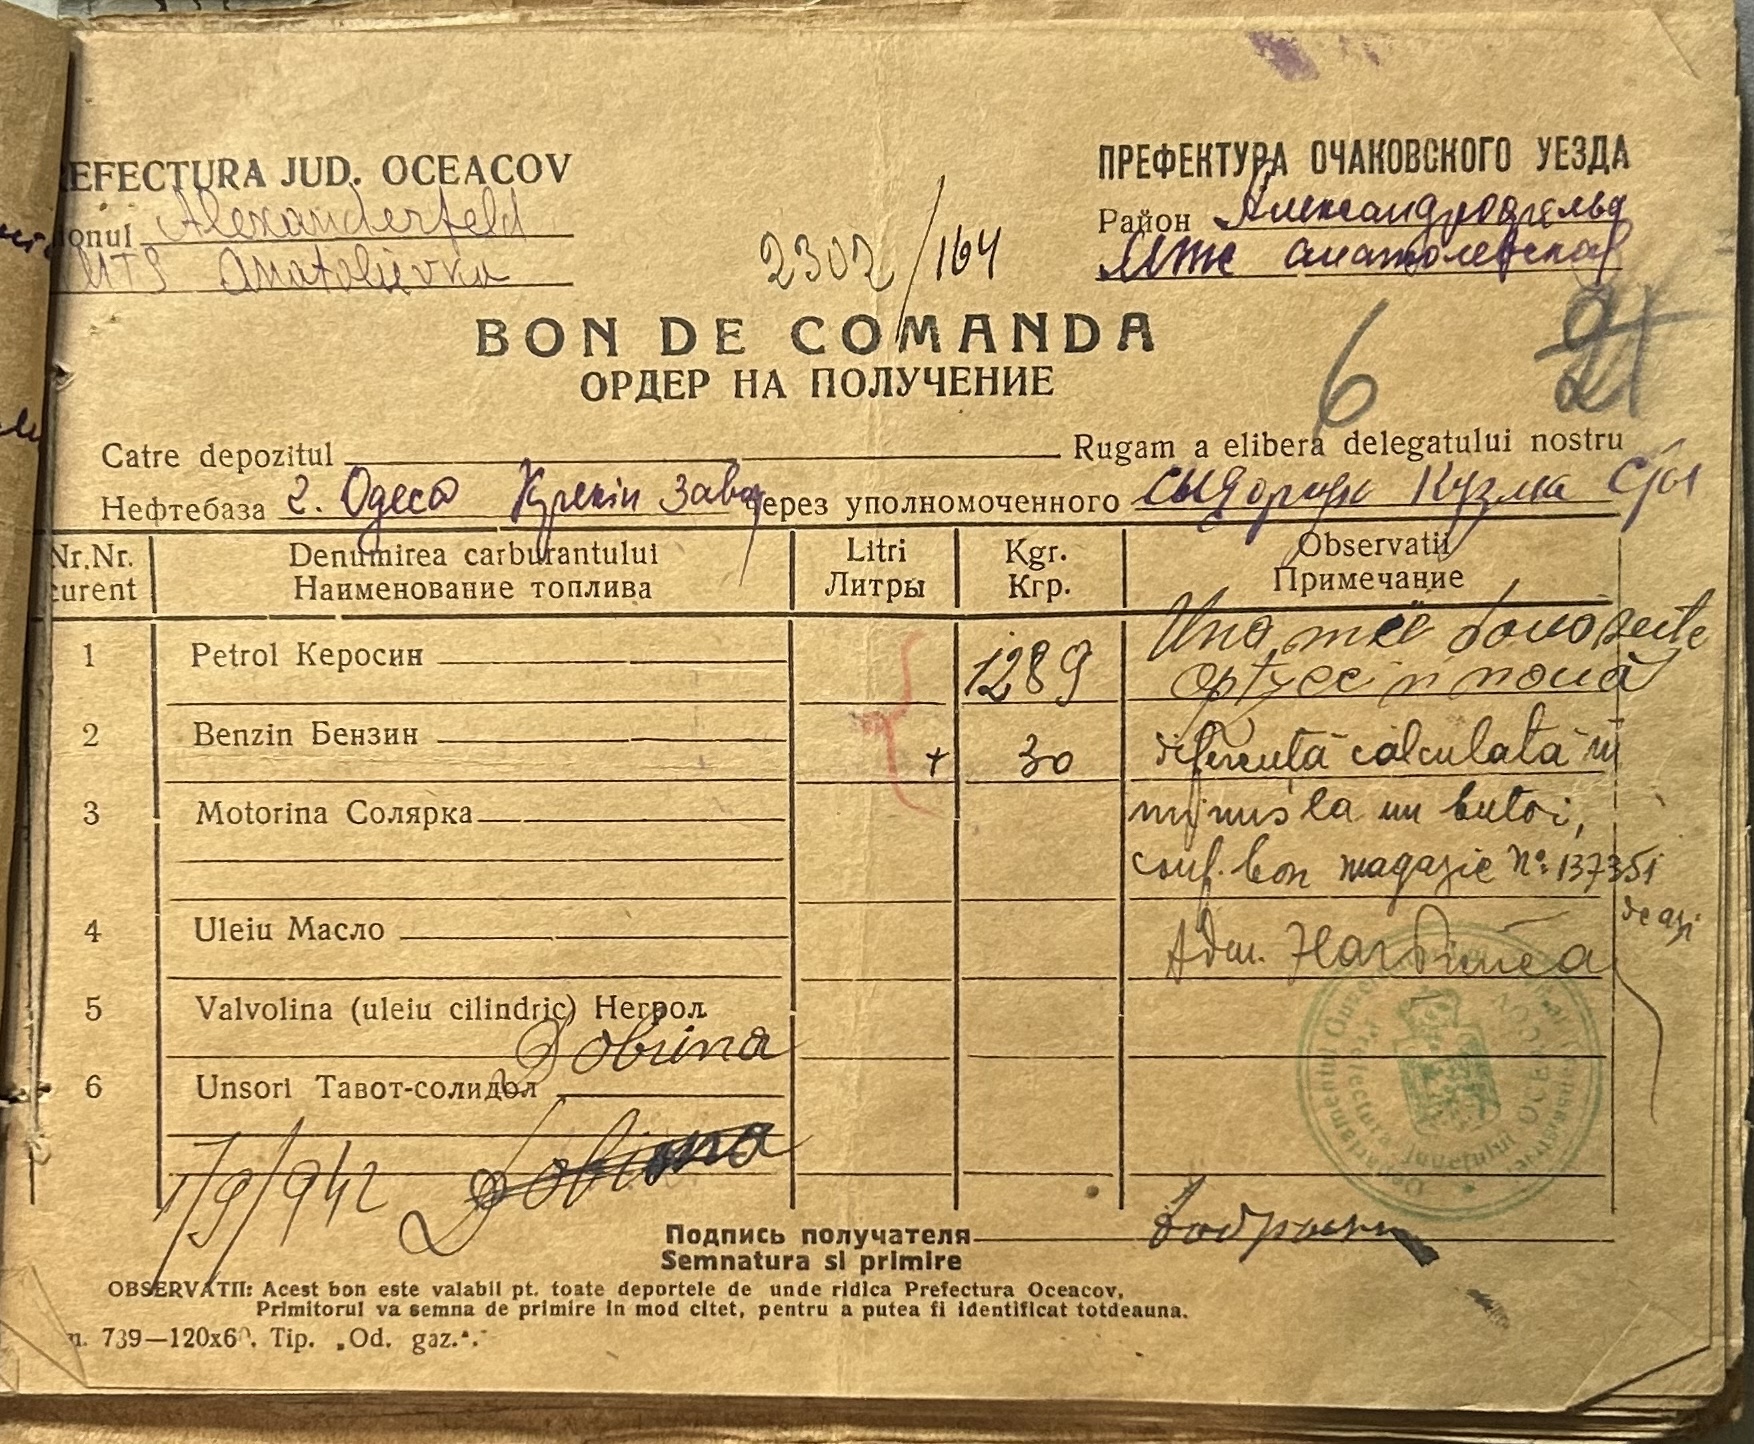 REFECTURA JUD. OCEACOV
ПРЕФЕКТУРА ОЧАКОВСКОГО УЕЗДА
ionul Alexanderfeld
Район Александрофельд
MTS Anatolievka
2302/164
BON DE COMANDA
ОРДЕР НА ПОЛУЧЕНИЕ
6
Catre depozitul Rugam a elibera delegatului nostru
Нефтебаза г. Одеса Завод через уполномоченного Кузма
Nr.Nr. Denumirea carburantului Litri Kgr. Observatii
curent Наименование топлива Литры Кгр. Примечание
1 Petrol Керосин 1289 Una mie douo sute
optzeci si nouă
2 Benzin Бензин + 30 diferență calculată în
3 Motorina Солярка minus la un butoi,
conf. bon magazie No: 137351
de azi
4 Uleiu Масло Adm.
5 Valvolina (uleiu cilindric) Негрол
Dobrina
6 Unsori Тавот-солидол
1/9/942 Dobrina
Подпись получателя
Semnatura si primire
OBSERVATII: Acest bon este valabil pt. toate deportele de unde ridica Prefectura Oceacov,
Primitorul va semna de primire in mod citet, pentru a putea fi identificat totdeauna.
m. 739—120x60. Tip. „Od. gaz.".